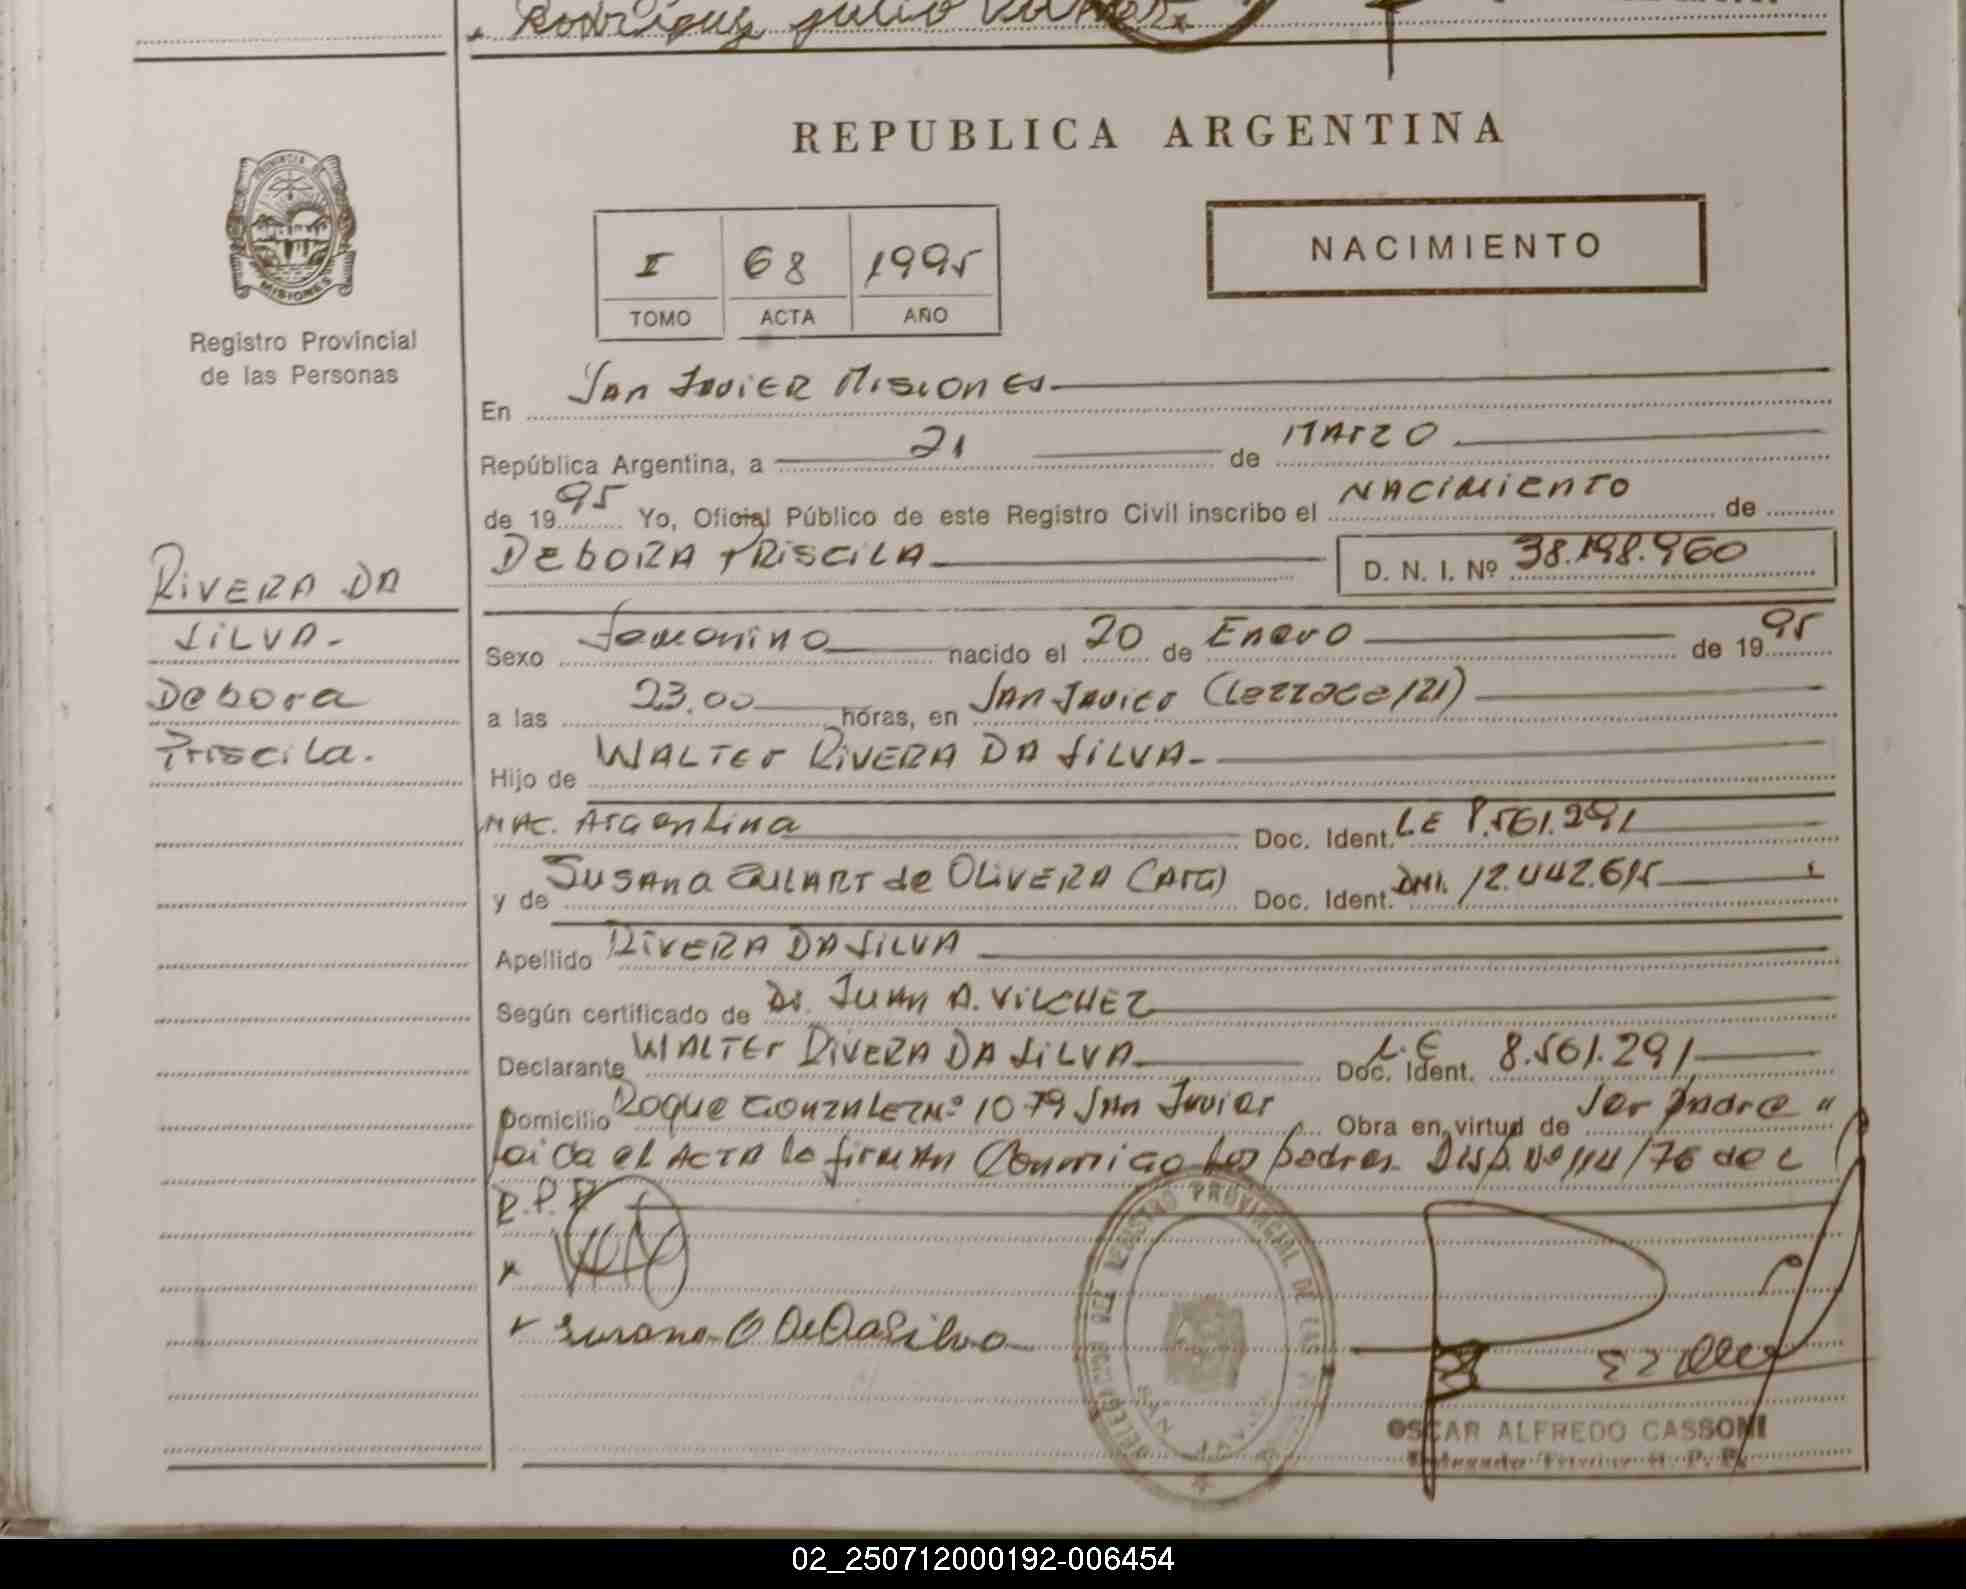 Rodriguez Julio
REPUBLICA ARGENTINA
PROVINCIA DE
MISIONES
Registro Provincial
de las Personas
I 68 1995
TOMO ACTA AÑO
NACIMIENTO
En San Javier Misiones
República Argentina, a 21 de Marzo
de 1995 Yo, Oficial Público de este Registro Civil inscribo el Nacimiento de
Debora Priscila D. N. I. Nº 38.198.960
RIVERA DA
SILVA.-
Debora
Priscila.
Sexo Femenino nacido el 20 de Enero de 1995
a las 23.00 horas, en San Javier
Hijo de Walter Rivera Da Silva.-
Nac. Argentina Doc. Ident. LE 8.561.291
y de Susana Gulart de Olivera (Arg) Doc. Ident. DNI. 12.442.615
Apellido Rivera Da Silva
Según certificado de Dr. Juan A. Vilchez
Declarante Walter Rivera Da Silva Doc. Ident. L.E 8.561.291
Domicilio Roque Gonzalez Nº 1079 San Javier Obra en virtud de Ser Padre "
Leida el Acta la firman Conmigo los padres. Disp. Nº 114/76 del
R.P.P
Susana O De Da Silva
DELEGACION DEL REGISTRO PROVINCIAL DE LAS
SAN JAVIER
OSCAR ALFREDO CASSONI
Delegado Titular R. P. P.
02_250712000192-006454